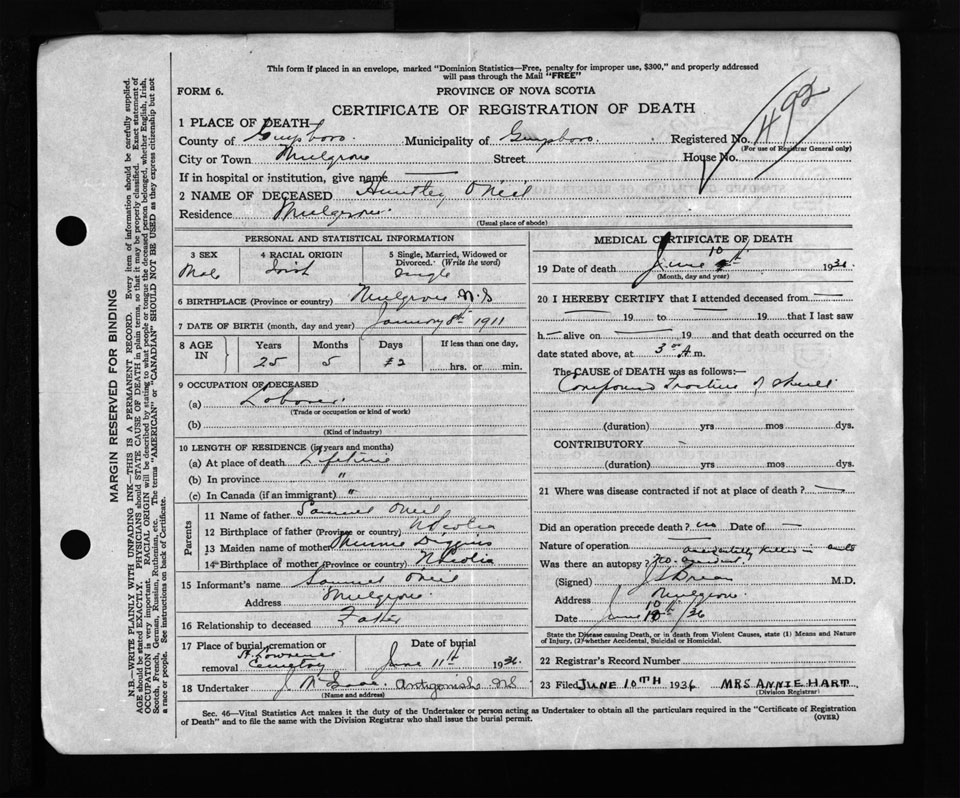 This form if placed in an envelope, marked "Dominion Statistics—Free, penalty for improper use, $300," and properly addressed
will pass through the Mail "FREE"
FORM 6.
PROVINCE OF NOVA SCOTIA
CERTIFICATE OF REGISTRATION OF DEATH
492
1 PLACE OF DEATH
County of Guysboro. Municipality of Guysboro Registered No.
(For use of Registrar General only)
City or Town Mulgrave Street House No.
If in hospital or institution, give name
2 NAME OF DECEASED Huntley O'Neil
Residence Mulgrave.
(Usual place of abode)
PERSONAL AND STATISTICAL INFORMATION
3 SEX 4 RACIAL ORIGIN 5 Single, Married, Widowed or Divorced. (Write the word)
Male Irish Single
6 BIRTHPLACE (Province or country) Mulgrave N.S
7 DATE OF BIRTH (month, day and year) January 8th 1911
8 AGE IN Years Months Days If less than one day,
25 5 2 hrs. or min.
9 OCCUPATION OF DECEASED
(a) Laborer
(Trade or occupation or kind of work)
(b)
(Kind of industry)
10 LENGTH OF RESIDENCE (in years and months)
(a) At place of death Lifetime
(b) In province "
(c) In Canada (if an immigrant) "
Parents
11 Name of father Samuel O'Neil
12 Birthplace of father (Province or country) N Scotia
13 Maiden name of mother Minnie
14 Birthplace of mother (Province or country) N Scotia
15 Informant's name Samuel O'Neil
Address Mulgrave.
16 Relationship to deceased Father
17 Place of burial, cremation or removal St Lawrence Cemetery
Date of burial June 11th 1936
18 Undertaker Antigonish N.S
(Name and address)
MEDICAL CERTIFICATE OF DEATH
19 Date of death June 10th 1936
(Month, day and year)
20 I HEREBY CERTIFY that I attended deceased from —
— 19 — to — 19 — that I last saw
h — alive on — 19 — and that death occurred on the
date stated above, at 3 A.m.
The CAUSE of DEATH was as follows:—
Compound Fracture of Skull
(duration) yrs mos dys.
CONTRIBUTORY —
(duration) yrs mos dys.
21 Where was disease contracted if not at place of death? —
Did an operation precede death? no Date of —
Nature of operation —
accidentally killed in auto
Was there an autopsy? No. accident.
(Signed) M.D.
Address Mulgrave
Date June 10th /36
State the Disease causing Death, or in death from Violent Causes, state (1) Means and Nature
of Injury, (2) whether Accidental, Suicidal or Homicidal.
22 Registrar's Record Number
23 Filed JUNE 10TH 1936 MRS ANNIE HART
(Division Registrar)
Sec. 46—Vital Statistics Act makes it the duty of the Undertaker or person acting as Undertaker to obtain all the particulars required in the "Certificate of Registration
of Death" and to file the same with the Division Registrar who shall issue the burial permit.
(OVER)
MARGIN RESERVED FOR BINDING
N.B.—WRITE PLAINLY WITH UNFADING INK—THIS IS A PERMANENT RECORD. Every item of information should be carefully supplied.
AGE should be stated EXACTLY. PHYSICIANS should STATE CAUSE OF DEATH in plain terms, so that it may be properly classified. Exact statement of
OCCUPATION is very important. RACIAL ORIGIN will be described by stating to what people or tongue the deceased person belonged, whether English, Irish,
Scotch, French, German, Russian, Ruthenian, etc. The terms "AMERICAN" or "CANADIAN" SHOULD NOT BE USED as they express citizenship but not
a race or people. See instructions on back of Certificate.